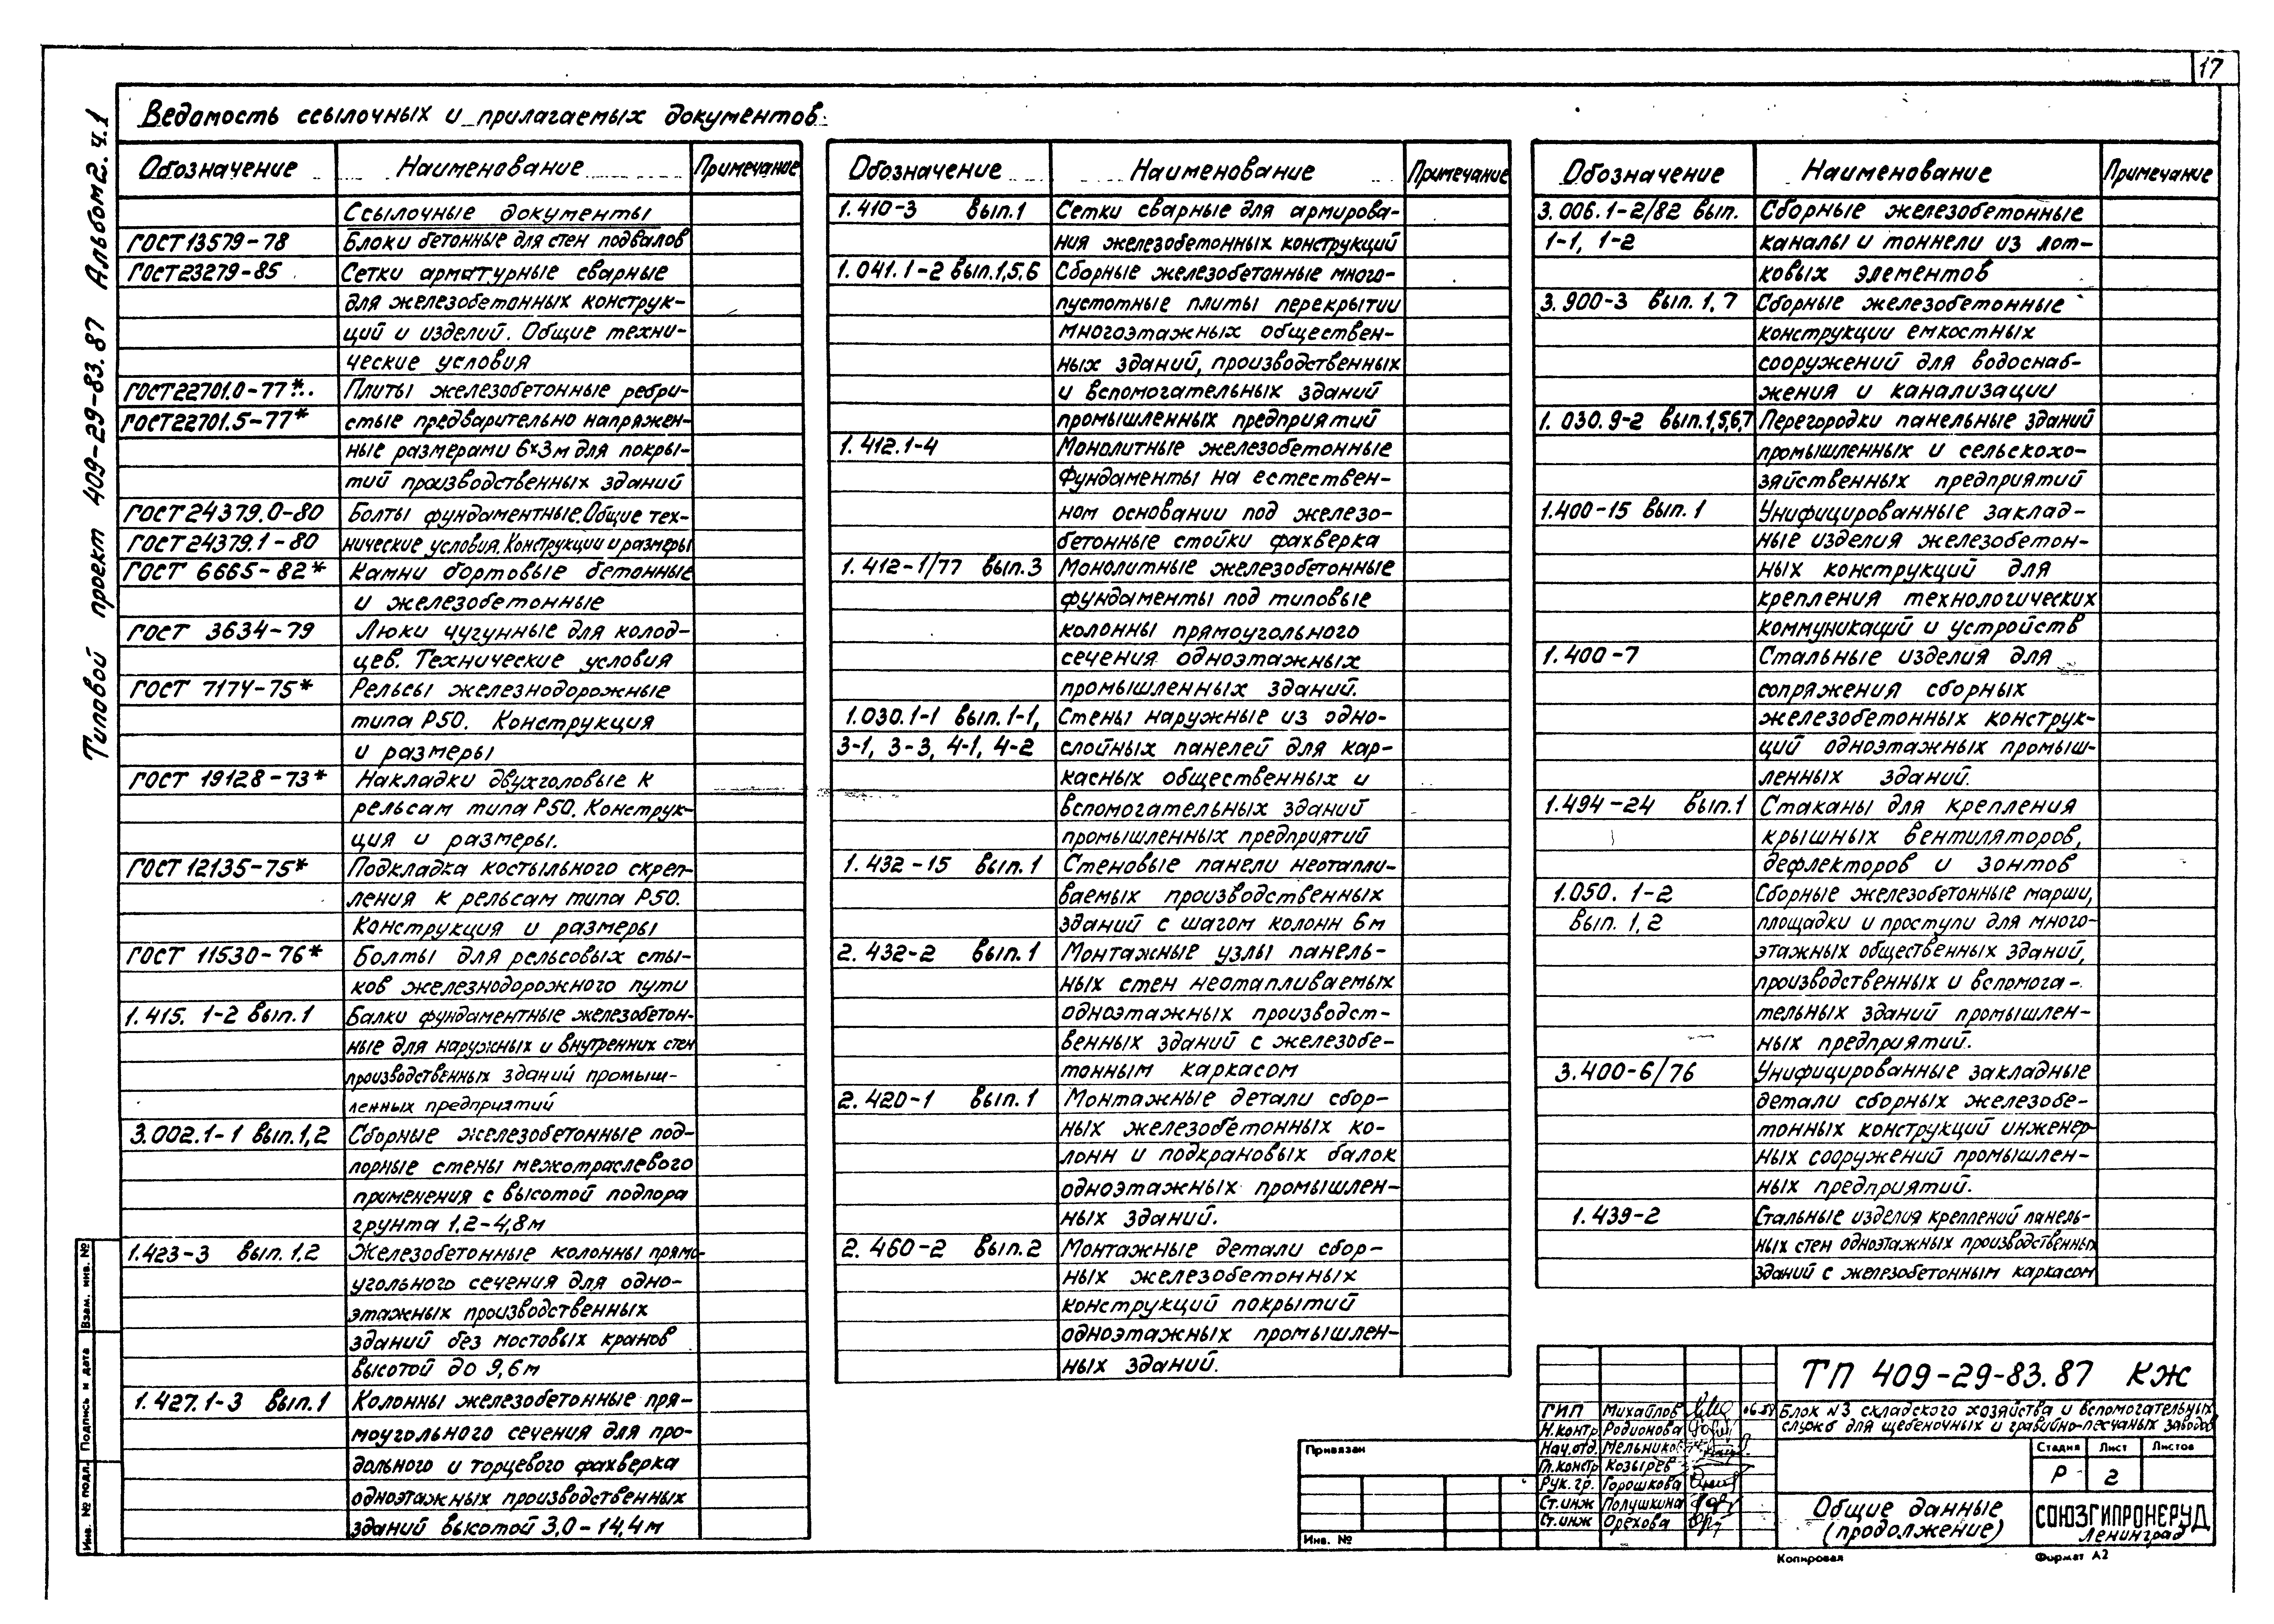 17
Типовой проект 409-29-83.87 Альбом 2. ч.1
Ведомость ссылочных и прилагаемых документов
Обозначение Наименование Примечание
Ссылочные документы
ГОСТ 13579-78 Блоки бетонные для стен подвалов
ГОСТ 23279-85 Сетки арматурные сварные
для железобетонных конструк-
ций и изделий. Общие техни-
ческие условия
ГОСТ 22701.0-77*... Плиты железобетонные ребри-
ГОСТ 22701.5-77* стые предварительно напряжен-
ные размерами 6х3м для покры-
тий производственных зданий
ГОСТ 24379.0-80 Болты фундаментные. Общие тех-
ГОСТ 24379.1-80 нические условия. Конструкции и размеры
ГОСТ 6665-82* Камни бортовые бетонные
и железобетонные
ГОСТ 3634-79 Люки чугунные для колод-
цев. Технические условия
ГОСТ 7174-75* Рельсы железнодорожные
типа Р50. Конструкция
и размеры
ГОСТ 19128-73* Накладки двухголовые к
рельсам типа Р50. Конструк-
ция и размеры.
ГОСТ 12135-75* Подкладка костыльного скреп-
ления к рельсам типа Р50.
Конструкция и размеры
ГОСТ 11530-76* Болты для рельсовых сты-
ков железнодорожного пути
1.415. 1-2 вып.1 Балки фундаментные железобетон-
ные для наружных и внутренних стен
производственных зданий промыш-
ленных предприятий
3.002.1-1 вып.1,2 Сборные железобетонные под-
порные стены межотраслевого
применения с высотой подпора
грунта 1,2-4,8м
1.423-3 вып. 1,2 Железобетонные колонны прямо-
угольного сечения для одно-
этажных производственных
зданий без мостовых кранов
высотой до 9,6м
1.427.1-3 вып.1 Колонны железобетонные пря-
моугольного сечения для про-
дольного и торцевого фахверка
одноэтажных производственных
зданий высотой 3,0-14,4м
Обозначение Наименование Примечание
1.410-3 вып.1 Сетки сварные для армирова-
ния железобетонных конструкций
1.041.1-2 вып.1,5,6 Сборные железобетонные много-
пустотные плиты перекрытии
многоэтажных обществен-
ных зданий, производственных
и вспомогательных зданий
промышленных предприятий
1.412.1-4 Монолитные железобетонные
фундаменты на естествен-
ном основании под железо-
бетонные стойки фахверка
1.412-1/77 вып.3 Монолитные железобетонные
фундаменты под типовые
колонны прямоугольного
сечения одноэтажных
промышленных зданий.
1.030.1-1 вып.1-1, Стены наружные из одно-
3-1, 3-3, 4-1, 4-2 слойных панелей для кар-
касных общественных и
вспомогательных зданий
промышленных предприятий
1.432-15 вып.1 Стеновые панели неотапли-
ваемых производственных
зданий с шагом колонн 6м
2.432-2 вып.1 Монтажные узлы панель-
ных стен неотапливаемых
одноэтажных производст-
венных зданий с железобе-
тонным каркасом
2.420-1 вып.1 Монтажные детали сбор-
ных железобетонных ко-
лонн и подкрановых балок
одноэтажных промышлен-
ных зданий.
2.460-2 вып.2 Монтажные детали сбор-
ных железобетонных
конструкций покрытий
одноэтажных промышлен-
ных зданий.
Обозначение Наименование Примечание
3.006.1-2/82 вып. Сборные железобетонные
1-1, 1-2 каналы и тоннели из лот-
ковых элементов
3.900-3 вып.1,7 Сборные железобетонные
конструкции емкостных
сооружений для водоснаб-
жения и канализации
1.030.9-2 вып.1,5,6,7 Перегородки панельные зданий
промышленных и сельскохо-
зяйственных предприятий
1.400-15 вып.1 Унифицированные заклад-
ные изделия железобетон-
ных конструкций для
крепления технологических
коммуникаций и устройств
1.400-7 Стальные изделия для
сопряжения сборных
железобетонных конструк-
ций одноэтажных промыш-
ленных зданий.
1.494-24 вып.1 Стаканы для крепления
крышных вентиляторов,
дефлекторов и зонтов
1.050. 1-2 Сборные железобетонные марши,
вып. 1,2 площадки и проступи для много-
этажных общественных зданий,
производственных и вспомога-
тельных зданий промышлен-
ных предприятий.
3.400-6/76 Унифицированные закладные
детали сборных железобе-
тонных конструкций инженер-
ных сооружений промышлен-
ных предприятий.
1.439-2 Стальные изделия креплений панель-
ных стен одноэтажных производственных
зданий с железобетонным каркасом
Взам. инв. №
Подпись и дата
Инв. № подл.
Привязан
Инв. №
ГИП Михайлов
Н.контр Родионова
Нач.отд. Мельников
Гл.констр Козырев
Рук. гр. Горошкова
Ст.инж Полушкина
Ст.инж Орехова
ТП 409-29-83.87 КЖ
Блок №3 складского хозяйства и вспомогательных
служб для щебеночных и гравийно-песчаных заводов
Стадия Лист Листов
Р 2
Общие данные
(продолжение)
СОЮЗГИПРОНЕРУД
Ленинград
Копировал Формат А2